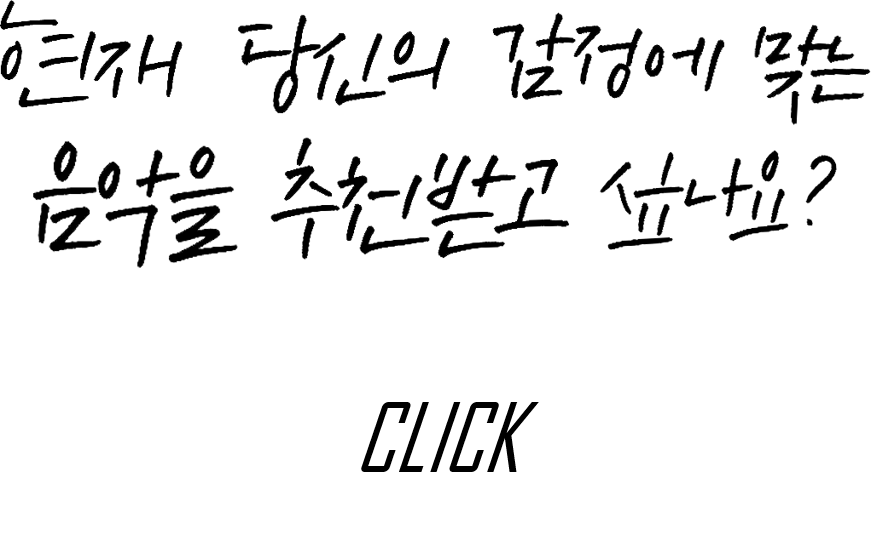 현재 당신의 감정에 맞는
음악을 추천받고 싶나요?
CLICK